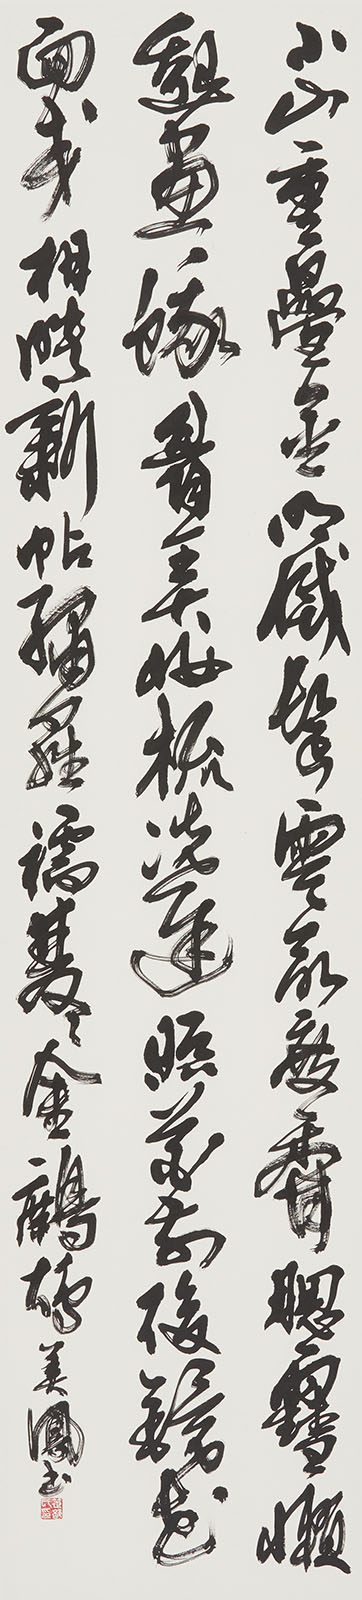 小山重疊金明滅鬢雲欲度香腮雪懶
起畫蛾眉弄妝梳洗遲照花前後鏡花
面交相映新帖繡羅襦雙々金鷓鴣美鳳書